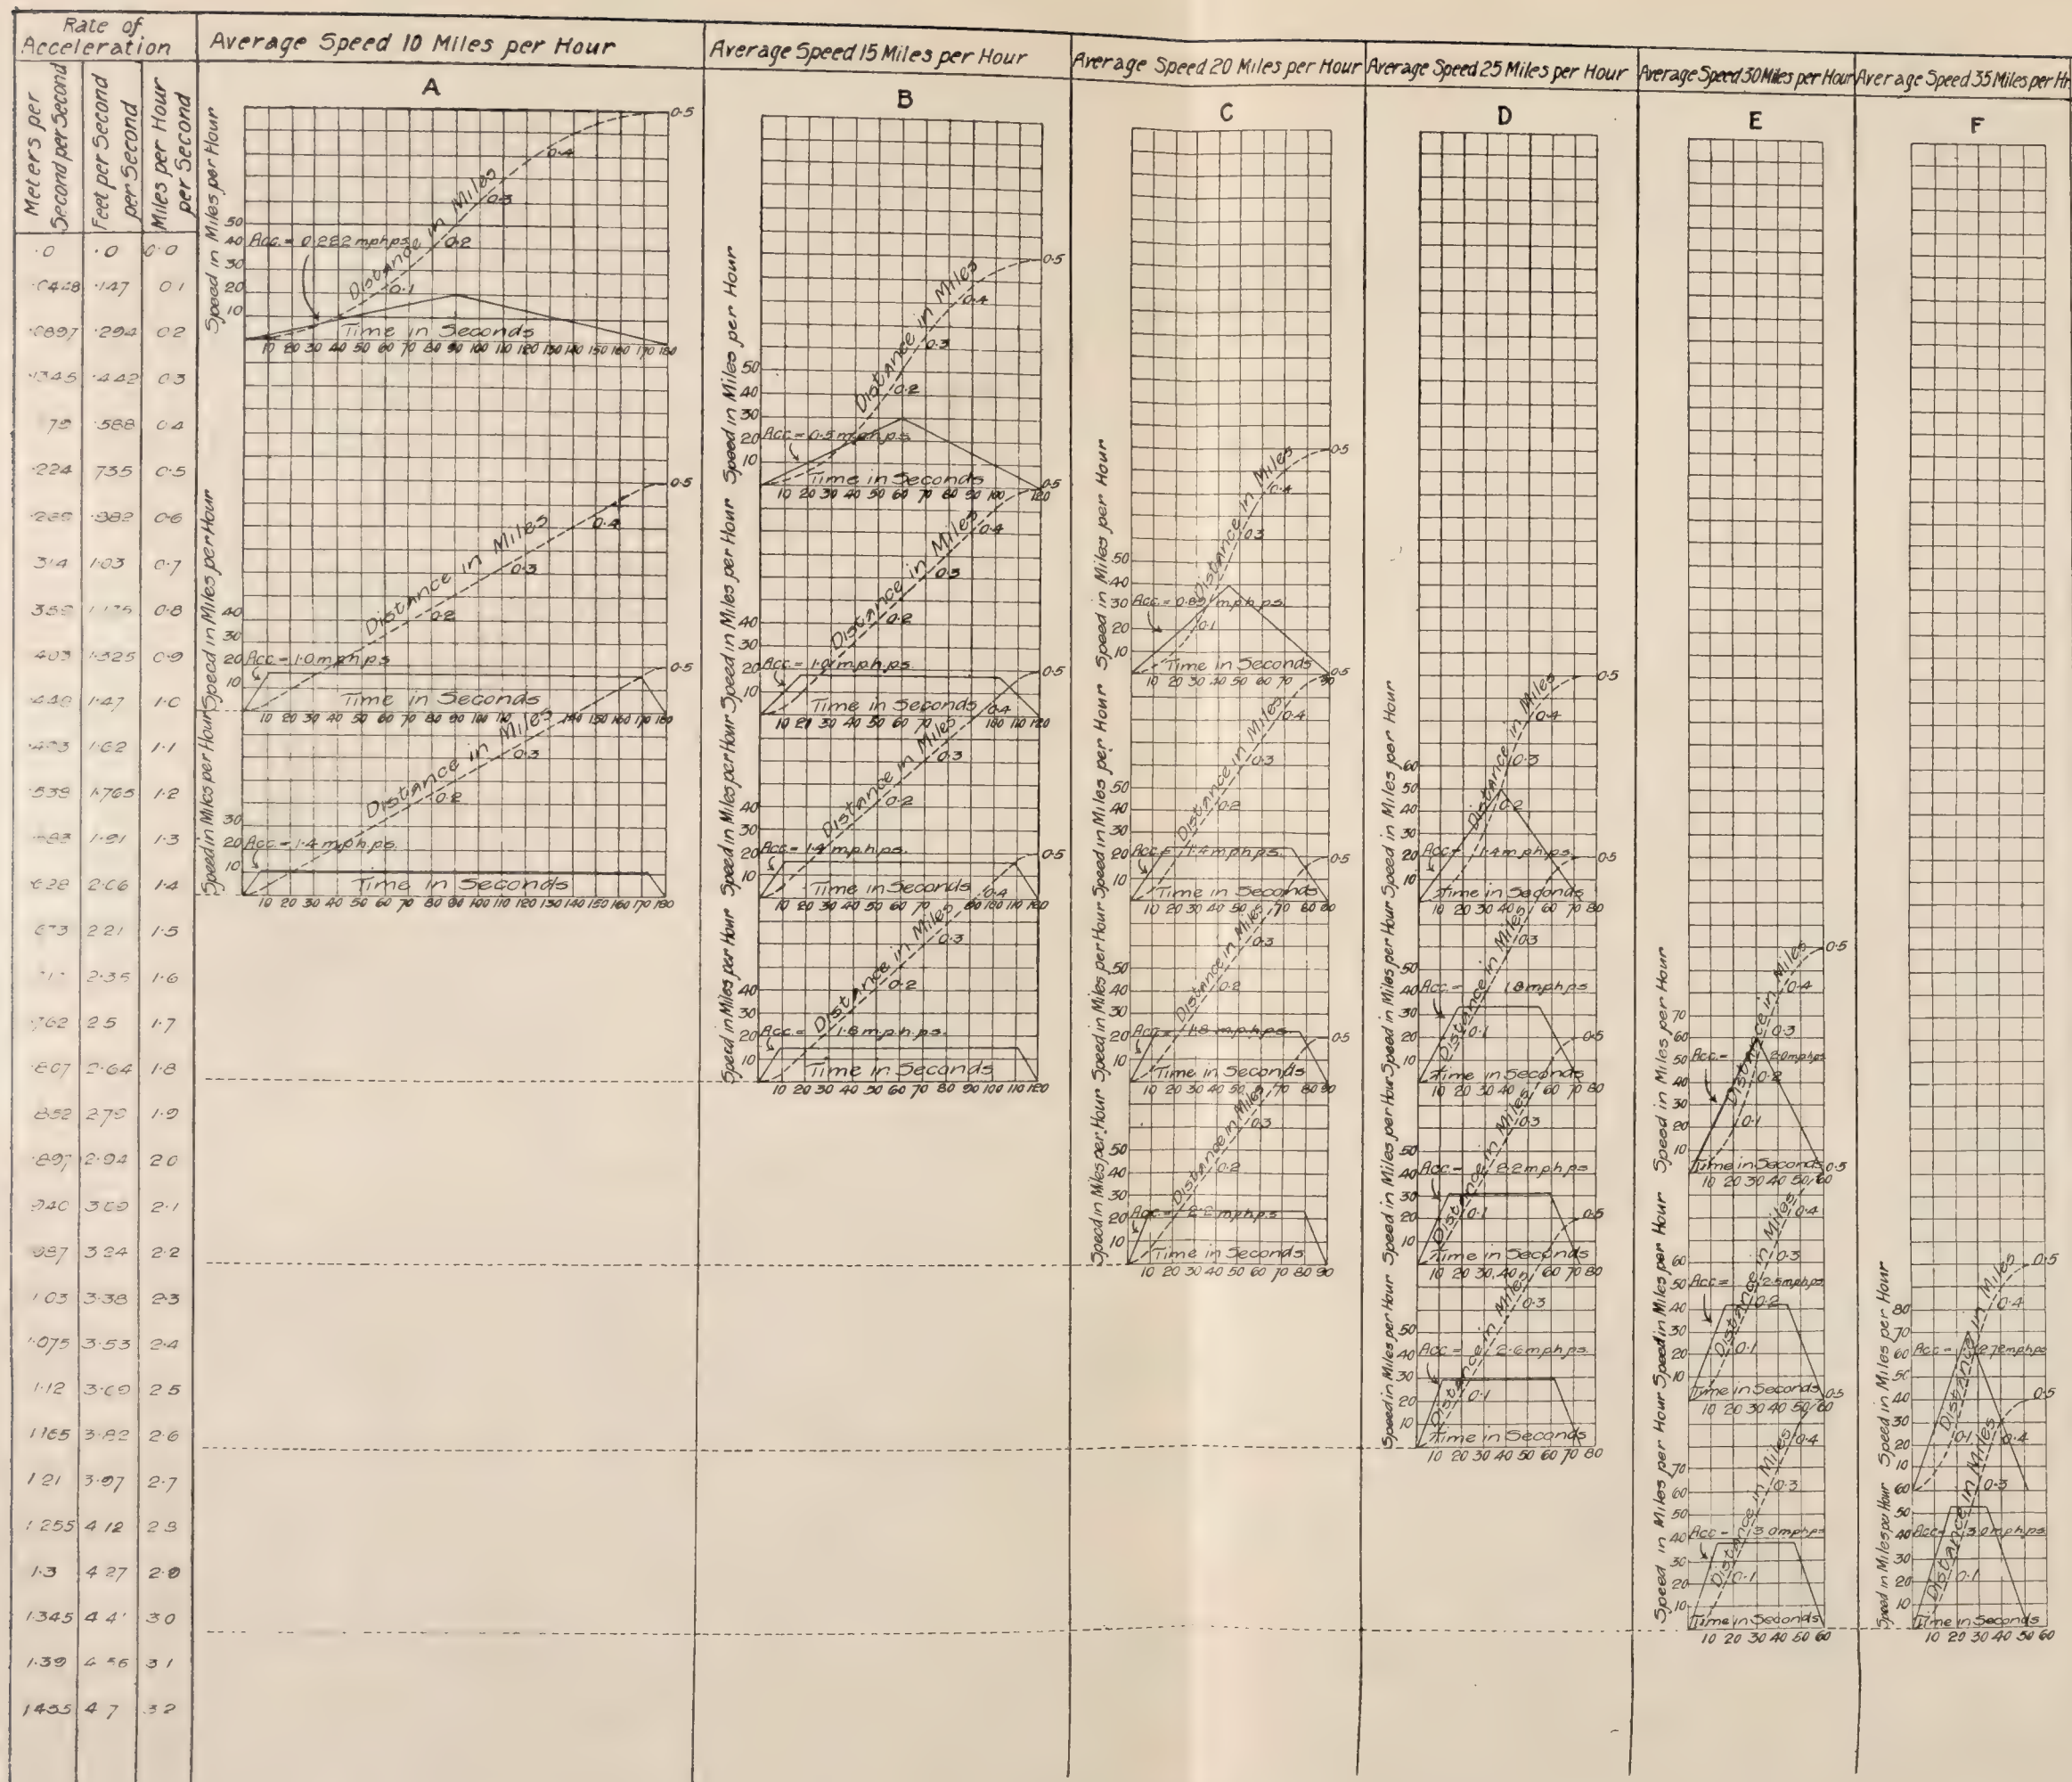 Rate of
Acceleration
Meters per
Second per Second
Feet per Second
per Second
Miles per Hour
per Second
·0 ·0 0·0
·147 0·1
·0897 ·294 0·2
·1345 ·442 0·3
·588 0·4
·224 735 0·5
0·6
314 1·03 0·7
0·8
·403 1·325 0·9
1·47 1·0
1·62 1·1
·538 1·765 1·2
1·91 1·3
2·06 1·4
2 21 1·5
2·35 1·6
·762 2 5 1·7
·807 2·64 1·8
·852 2·79 1·9
·897 2·94 2 0
·940 3 09 2·1
·987 3 24 2·2
1 03 3·38 2·3
1·075 3·53 2·4
1·12 3·69 2 5
1·165 3·82 2·6
1 21 3·97 2·7
1 255 4 12
1·3 4 27 2·9
1·345 3 0
1·39 3 1
1435 4 7 3 2
Average Speed 10 Miles per Hour
A
Speed in Miles per Hour
50
40
30
20
10
Acc. = 0.282 mphps.
Distance in Miles
0·1
0·2
0·3
0·4
0·5
Time in Seconds
10 20 30 40 50 60 70 80 90 100 110 120 130 140 150 160 170 180
Speed in Miles per Hour
40
30
20
10
Acc = 1·0 mphps
Distance in Miles
0·2
0·3
0·4
0·5
Time in Seconds
10 20 30 40 50 60 70 80 90 100 110 140 150 160 170 180
Speed in Miles per Hour
30
20
10
Acc = 1·4 mphps.
Distance in Miles
0·2
0·3
0·5
Time in Seconds
10 20 30 40 50 60 70 80 90 100 110 120 130 140 150 160 170 180
Average Speed 15 Miles per Hour
B
Speed in Miles per Hour
50
40
30
20
10
Acc = 0·5 mphps
Distance in Miles
0·2
0·3
0·4
0·5
Time in Seconds
10 20 30 40 50 60 70 80 90 100 120
Speed in Miles per Hour
40
30
20
10
Acc = 1·0 mph.ps.
Distance in Miles
0·2
0·3
0·4
0·5
Time in Seconds
10 20 30 40 50 60 70 100 110 120
Speed in Miles per Hour
40
30
20
10
Acc = 1·4 mph.ps.
Distance in Miles
0·2
0·3
0·4
0·5
Time in Seconds
10 20 30 40 50 60 70 100 110 120
Speed in Miles per Hour
40
30
20
10
Acc = 1·8 m.p.h.ps.
Distance in Miles
0·2
0·3
0·4
0·5
Time in Seconds
10 20 30 40 50 60 70 80 90 100 110 120
Average Speed 20 Miles per Hour
C
Speed in Miles per Hour
50
40
30
20
10
mph.ps.
Distance in Miles
0·1
0·3
0·4
0·5
Time in Seconds
10 20 30 40 50 60 70 90
Speed in Miles per Hour
50
40
30
20
10
Acc = 1·4 mphps.
Distance in Miles
0·2
0·3
0·4
0·5
Time in Seconds
10 20 30 40 50 60 70 80 90
Speed in Miles per Hour
50
40
30
20
10
Acc = 1·8 mphps
Distance in Miles
0·2
0·3
0·5
Time in Seconds
10 20 30 40 50 60 70 80 90
Speed in Miles per Hour
50
40
30
20
10
Acc = 2·2 mphps
Distance in Miles
0·2
0·3
0·5
Time in Seconds
10 20 30 40 50 60 70 80 90
Average Speed 25 Miles per Hour
D
Speed in Miles per Hour
60
50
40
30
20
10
Acc = 1·4 mphps
Distance in Miles
0·2
0·3
0·4
0·5
Time in Seconds
10 20 30 40 60 70 80
Speed in Miles per Hour
50
40
30
20
10
Acc = 1·8 mphps
Distance in Miles
0·1
0·3
0·5
Time in Seconds
10 20 30 40 60 70 80
Speed in Miles per Hour
50
40
30
20
10
Acc = 2·2 mphps
Distance in Miles
0·1
0·3
0·5
Time in Seconds
10 20 30 40 60 70 80
Speed in Miles per Hour
50
40
30
20
10
Acc = 2·6 mphps
Distance in Miles
0·1
0·3
0·5
Time in Seconds
10 20 30 40 50 60 70 80
Average Speed 30 Miles per Hour
E
Speed in Miles per Hour
70
60
50
40
30
20
10
Acc = 2·0 mphps
Distance in Miles
0·1
0·2
0·3
0·4
0·5
Time in Seconds
10 20 30 40 50 60
Speed in Miles per Hour
60
50
40
30
20
10
Acc = 2·5 mphps
Distance in Miles
0·1
0·2
0·3
0·4
0·5
Time in Seconds
10 20 30 40 50 60
Speed in Miles per Hour
70
60
50
40
30
20
10
Acc = 3 0 mphps
Distance in Miles
0·1
0·3
0·4
0·5
Time in Seconds
10 20 30 40 50 60
Average Speed 35 Miles per Hr.
F
Speed in Miles per Hour
80
70
60
50
40
30
20
10
Acc = 2·72 mphps
Distance in Miles
0·1
0·4
0·5
Speed in Miles per Hour
60
50
40
30
20
10
Acc = 3 0 mphps
Distance in Miles
0·1
0·3
0·4
0·5
Time in Seconds
10 20 30 40 50 60